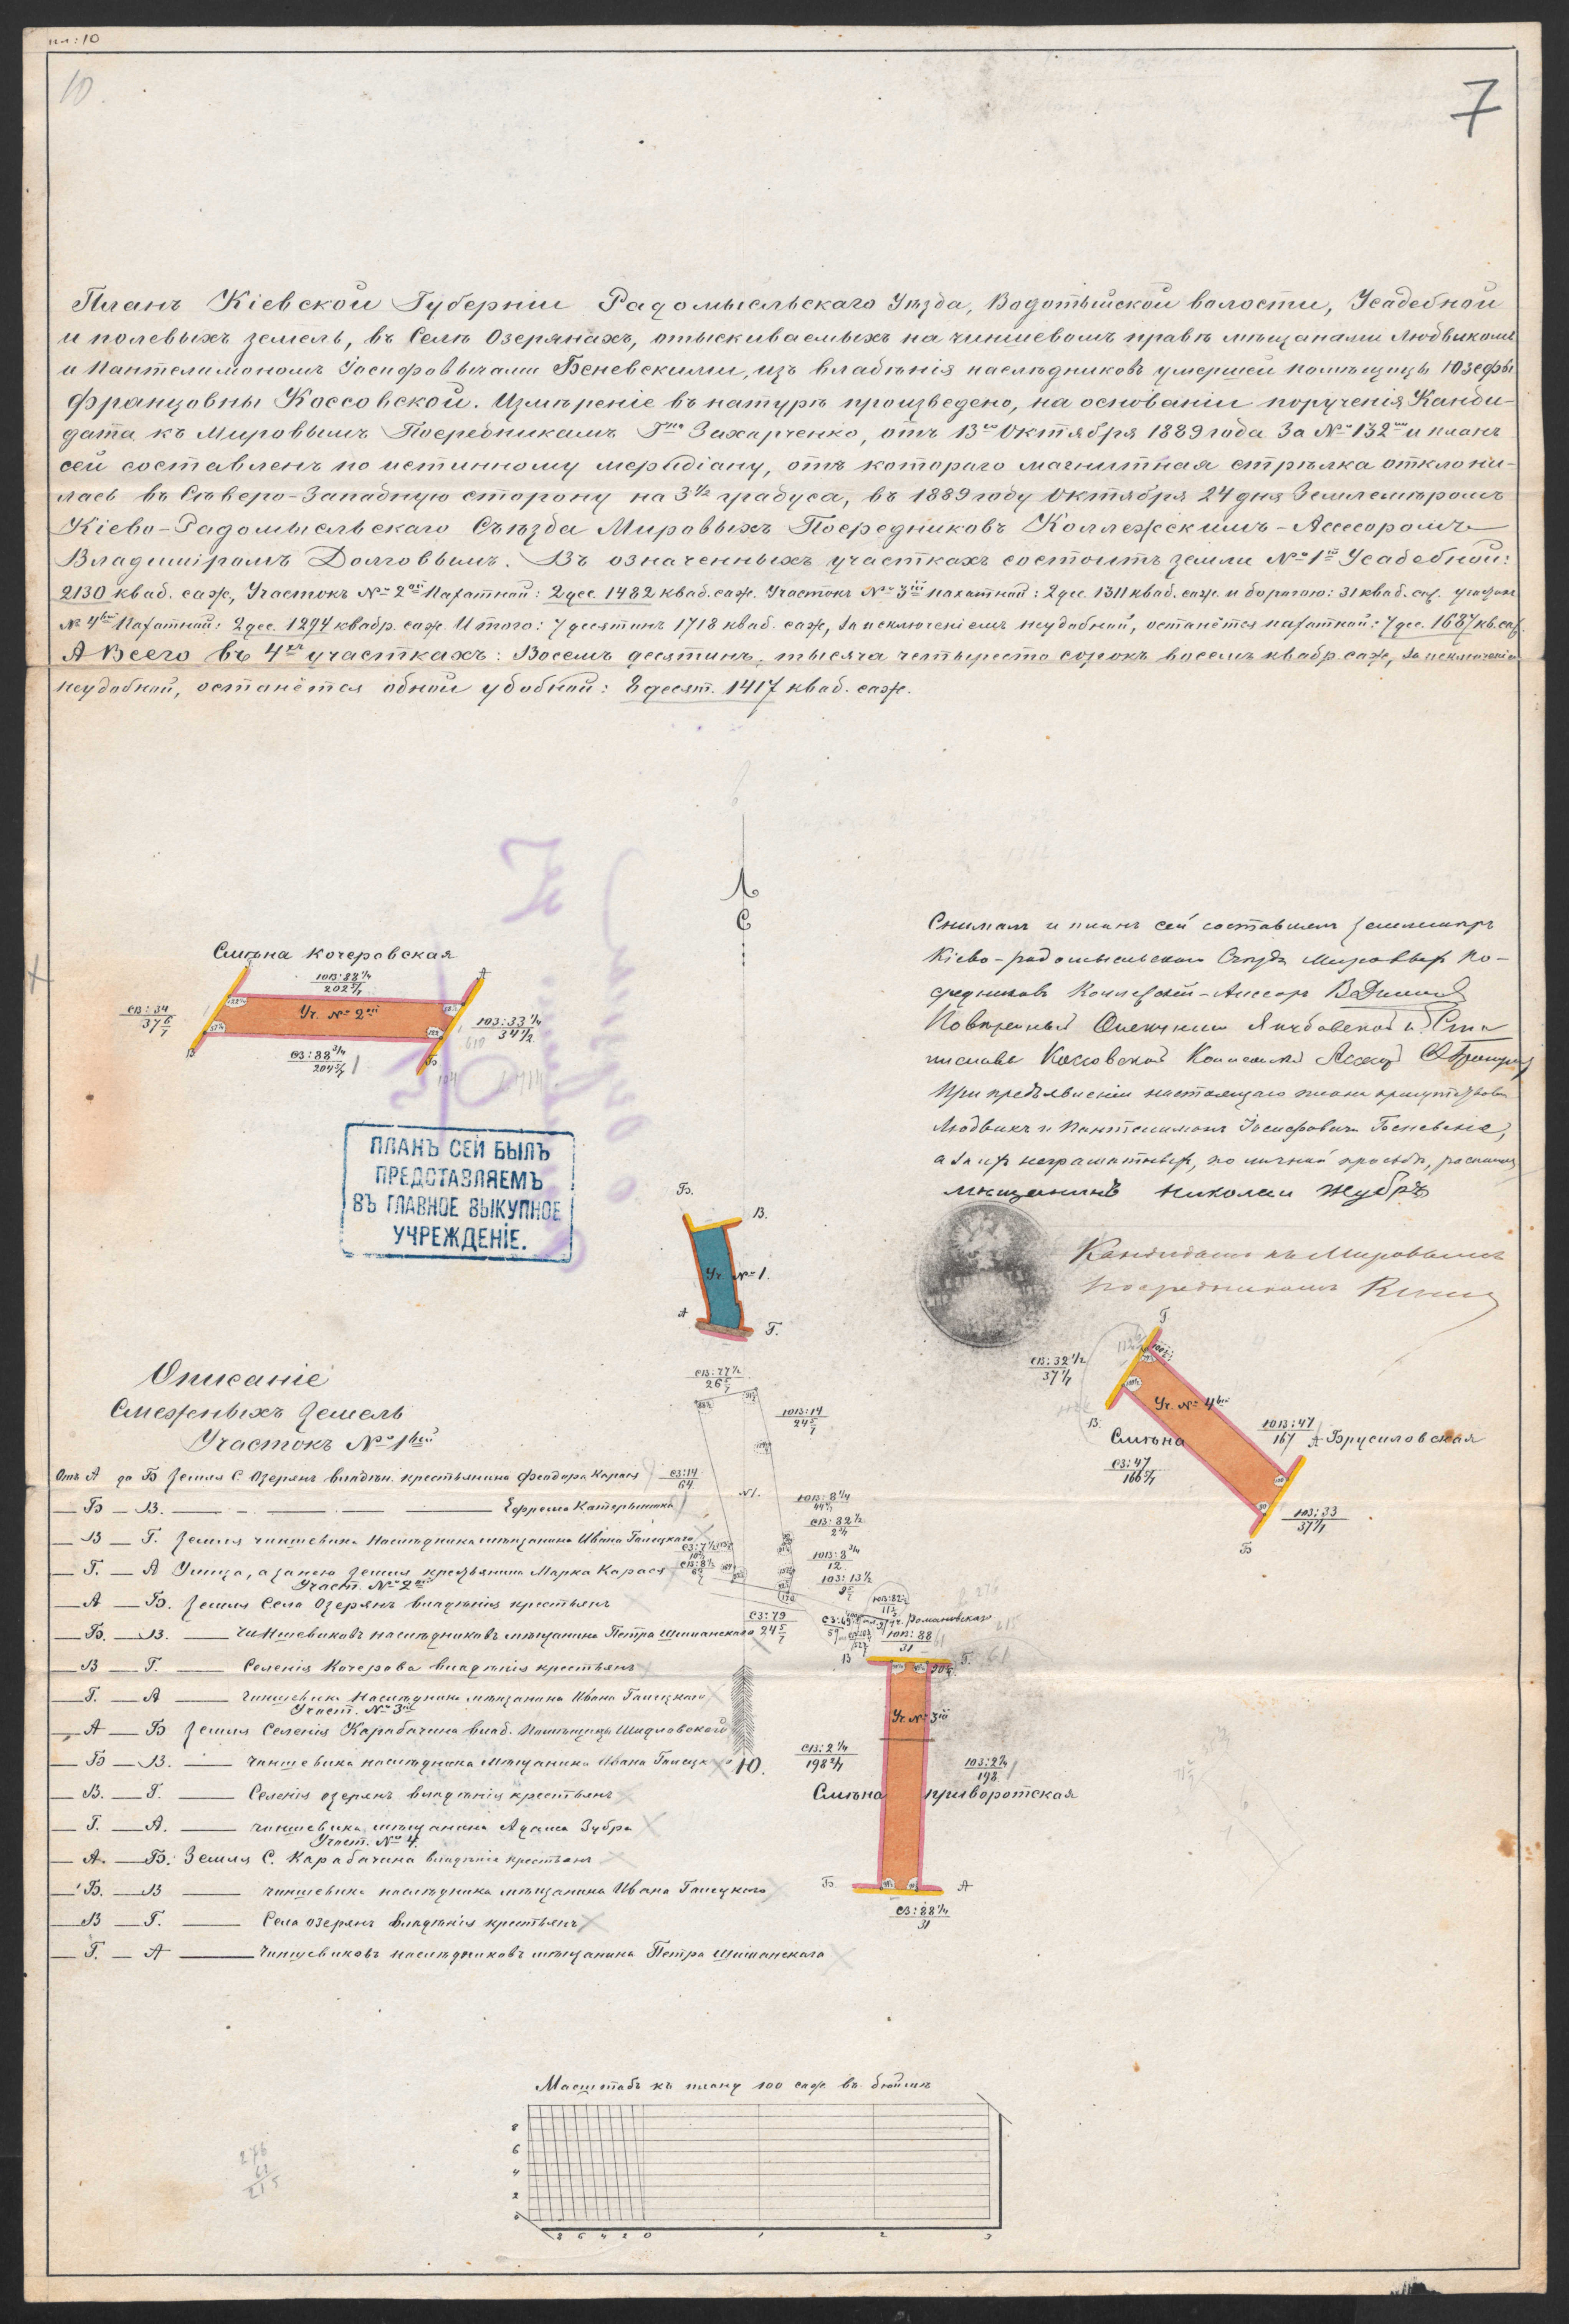 пл: 10
10.
7
Планъ Кіевской Губерніи Радомысльскаго Уѣзда, Водотыйской волости, Усадебной
и полевыхъ земель, въ Селѣ Озерянахъ, отыскиваемыхъ на чиншевомъ правѣ мѣщанами Людвикомъ
и Пантелимономъ Іосифовичами Беневскими, изъ владѣнія наслѣдниковъ умершей помѣщицы Юзефы
Францовны Коссовской. Измѣреніе въ натурѣ произведено, на основаніи порученія Канди-
дата къ Мировымъ Посредникамъ Г-на Захарченко, отъ 13го Октября 1889 года за № 132мъ и планъ
сей составленъ по истинному меридіану, отъ котораго магнитная стрѣлка отклони-
лась въ Сѣверо-Западную сторону на 3 1/2 градуса, въ 1889 году Октября 24 дня Землемѣромъ
Кіево-Радомысльскаго Съѣзда Мировыхъ Посредниковъ Коллежскимъ-Ассесоромъ
Владиміромъ Долговымъ. Въ означенныхъ участкахъ состоитъ земли № 1й Усадебной:
2130 квад. саж, Участокъ № 2ой Пахатной: 2 дес. 1482 квад. саж. Участокъ № 3ій пахатной: 2 дес. 1311 квад. саж. и дорогою: 31 квад. саж. участокъ
№ 4ый Пахатной: 2 дес. 1294 квадр. саж. Итого: 7 десятинъ 1718 квад. саж, за исключеніемъ неудобной, останётся пахатной: 7 дес. 1687 кв. саж.
А Всего въ 4хъ участкахъ: Восемь десятинъ, тысяча четыреста сорокъ восемь квадр саж, за исключеніе
неудобной, останётся одной удобной: 8 десят. 1417 квад. саж.
С
Смѣна Кочеровская
ЮВ: 88 1/4
202 5/7
А
СВ: 34
37 6/7
Уч. № 2ой
ЮЗ: 33 1/4
34 1/2
В
СЗ: 88 3/4
204 5/7
Б
Снималъ и планъ сей составилъ землемѣръ
Кіево-радомысльскаго Съѣзда Мировыхъ По-
средниковъ Коллежскій-Ассесоръ
Повѣренный
Коссовской
При предъявленіи настоящаго плана присутствовали
Людвикъ и Пантелимонъ Іосифовичи Беневскіе,
а за ихъ неграмотныхъ, по личной просьбѣ, росписался
мѣщанинъ Николай Жубръ
Кандидатъ къ Мировымъ
Посредникамъ
ПЛАНЪ СЕЙ БЫЛЪ
ПРЕДСТАВЛЯЕМЪ
ВЪ ГЛАВНОЕ ВЫКУПНОЕ
УЧРЕЖДЕНІЕ.
Б.
В.
Уч. № 1.
А
Г.
Г
СВ: 32 1/2
37 1/7
Уч. № 4ый
В.
Смѣна
ЮВ: 47
167
А
Брусиловская
СЗ: 47
166 5/7
ЮЗ: 33
37 1/7
Б
Описаніе
Смежныхъ земель
Участокъ № 1вый
Отъ А до Б Земля С. Озерянъ владѣн. крестьянина Феодора Карася
— Б — В. — Ефрема Катеринина
— В — Г. Земля чиншевика Наслѣдника мѣщанина Ивана Галецкаго
— Г. — А Улица, а за нею земля крестьянина Марка Карася
Участ. № 2ой
— А — Б. Земля Села Озерянъ владѣнія крестьянъ
— Б. — В. — чиншевиковъ наслѣдниковъ мѣщанина Петра Шиманскаго
— В — Г. — Селенія Кочерова владѣнія крестьянъ
— Г. — А — чиншевика Наслѣдника мѣщанина Ивана Галецкаго
Участ. № 3ій
— А — Б Земля Селенія Карабачина влад. Помѣщицы Шидловского
— Б — В. — чиншевика наслѣдника Мѣщанина Ивана Галецкаго
— В. — Г. — Селенія озерянъ владѣнія крестьянъ
— Г. — А. — чиншевика мѣщанина Адама Зубра
Участ. № 4.
— А. — Б. Земля С. Карабачина владѣнія крестьянъ
— Б. — В — чиншевика наслѣдника мѣщанина Ивана Галецкого
— В — Г. — Села озерянъ владѣнія крестьянъ
— Г. — А — Чиншевиковъ наслѣдниковъ мѣщанина Петра Шиманскаго
СВ: 77 1/2
26 5/7
ЮВ: 14
24 5/7
СЗ: 14
64
№ 1.
ЮВ: 8 1/4
СВ: 82 1/2
ЮВ: 8 3/4
12
ЮЗ: 13 1/2
СЗ: 79
24 5/7
Романовскаго
ЮВ: 88
31
В
Г.
Уч. № 3ій
СВ: 2 1/4
198 2/7
ЮЗ: 2 1/4
198
Смѣна приворотская
Б
А
СЗ: 88 1/4
31
Ю.
Масштабъ къ плану 100 саж въ дюймѣ
8
6
4
2
0
8 6 4 2 0 1 2 3
276
61
215